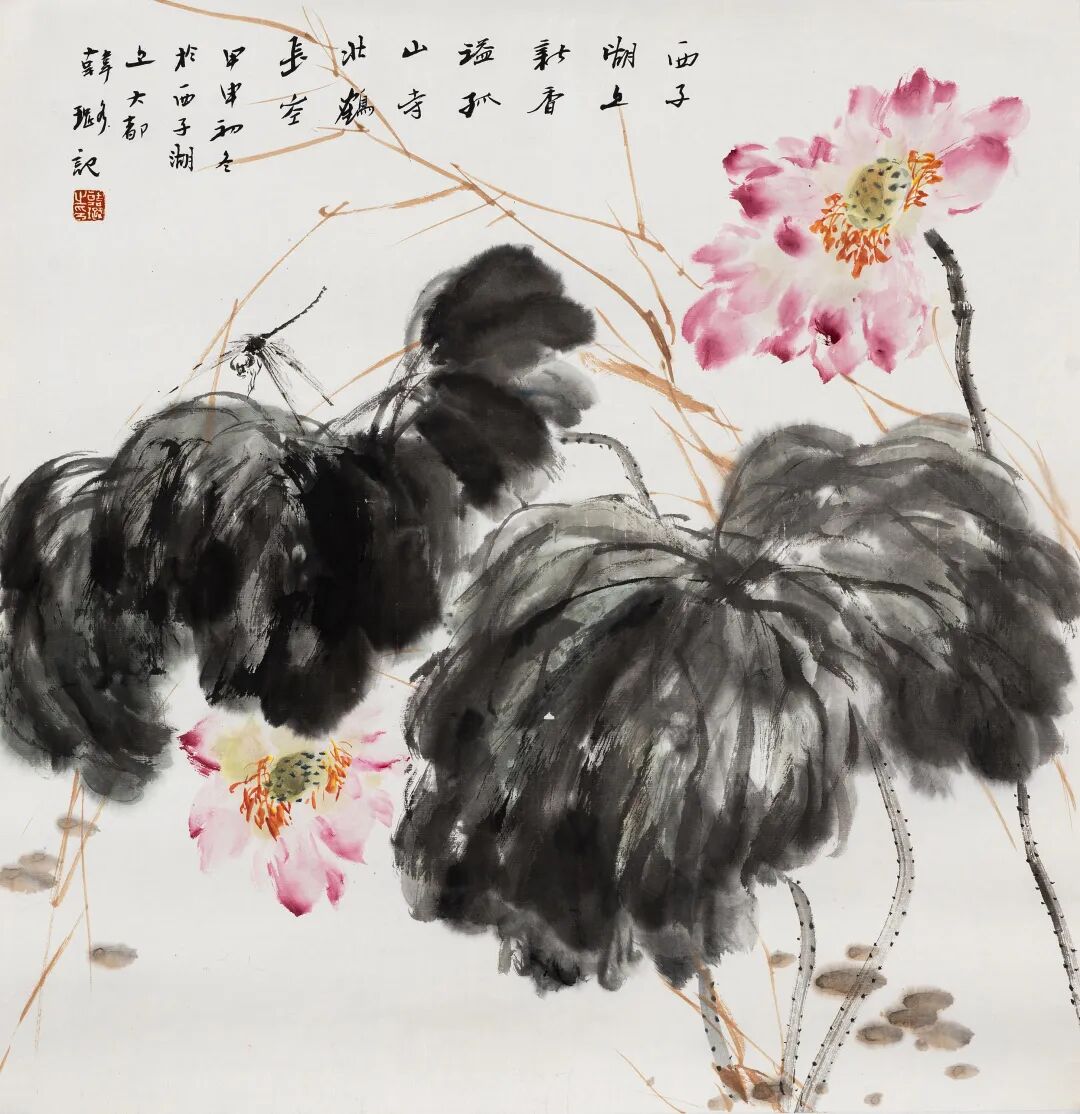 西子
湖上
新香
溢孤
山寺
鶴
長空
甲申初冬
於西子湖
上大都
韓璐記